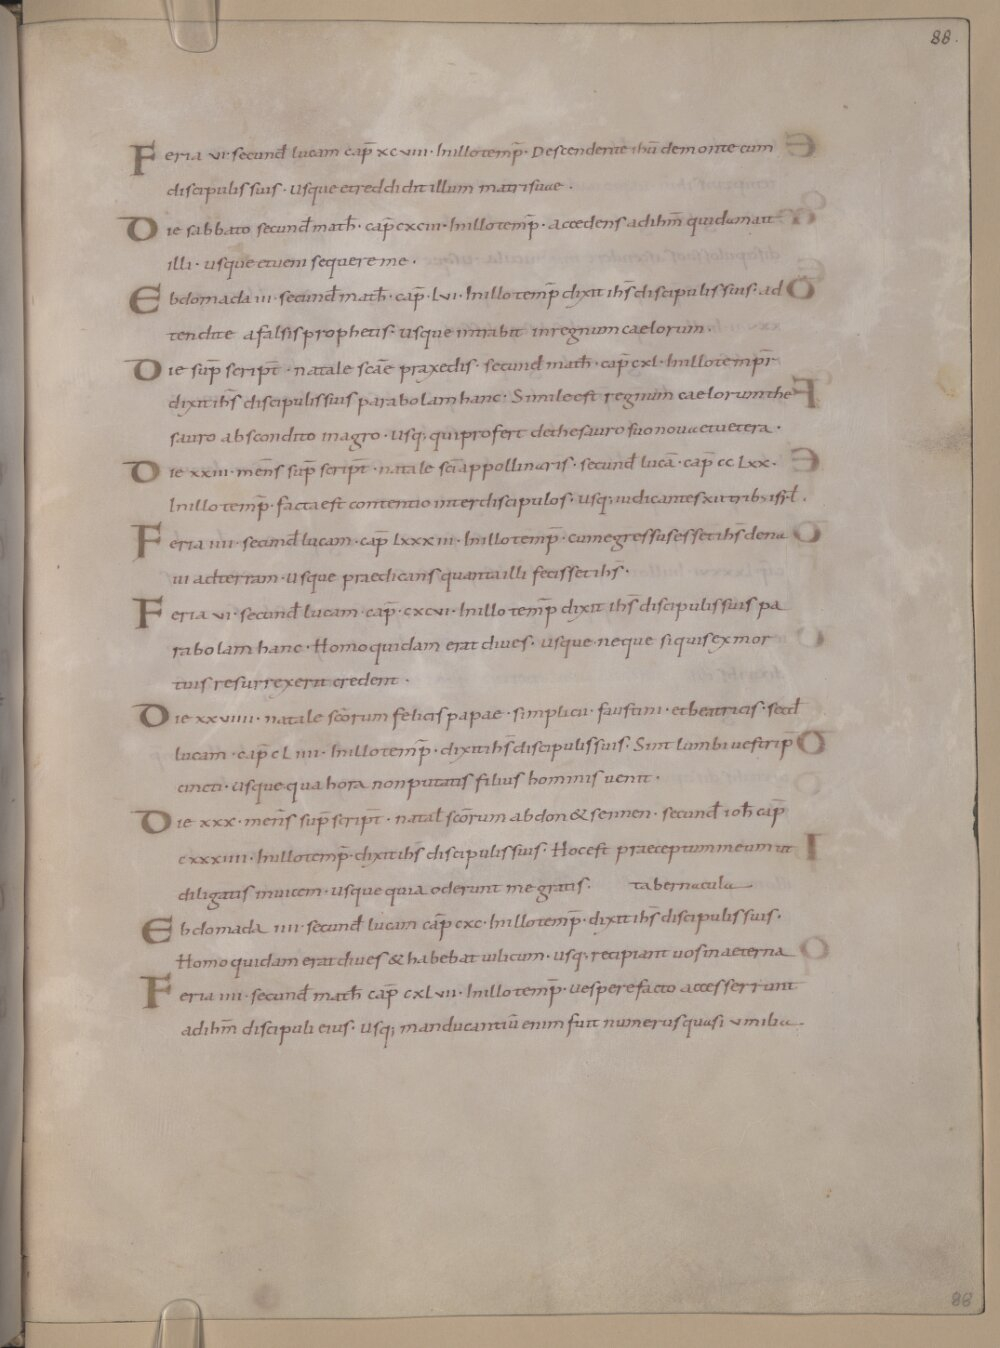 88.
Feria vi· secund̄ lucam cap̄ xcviii· Inillo temp̄· Descendente ihū demonte cum
discipulis suis· usque et reddidit illum matri suae·
Die sabbato secund̄ math̄· cap̄ cxciii· Inillo temp̄· accedens ad ihm̄ quidam ait
illi· usque et veni sequere me·
Ebdomada iii· secund̄ math̄· cap̄· Lvi· Inillo temp̄ dixit ihs̄ discipulis suis· ad
tendite a falsis prophetis· usque intrabit in regnum caelorum·
Die sup̄ script̄· natale scāe praxedis· secund̄ math̄· cap̄ cxl· Inillo tempr̄
dixit ihs̄ discipulis suis parabolam hanc· Simile est regnum caelorum the
sauro abscondito in agro· usq; qui profert de thesauro suo nova et vetera·
Die xxiii· mens̄ sup̄ script̄· natale scī appollinaris· secund̄ lucā· cap̄ cc Lxx·
Inillo temp̄· facta est contentio inter discipulos· usq; iudicantes xii trib; isrl̄·
Feria iiii· secund̄ lucam· cap̄ Lxxxiii· Inillo temp̄· cum egressus esset ihs̄ de na
ui ad terram· usque praedicans quanta illi fecisset ihs̄·
Feria vi· secund̄ lucam· cap̄· cxcvi· Inillo temp̄ dixit ihs̄ discipulis suis pa
rabolam hanc· Homo quidam erat dives· usque neque si quis ex mor
tuis resurrexerit credent·
Die xxviiii· natale scōrum felicis papae· simplicii· faustini· et beatricis· secd̄
lucam· cap̄ cLiiii· Inillo temp̄· dixit ihs̄ discipulis suis· Sint lumbi vestri p̄
cincti· usque qua hora non putatis filius hominis venit·
Die xxx· mens̄ sup̄ script̄· natal̄ scōrum abdon & sennen· secund̄ ioh̄ cap̄
cxxxiiii· Inillo temp̄· dixit ihs̄ discipulis suis· Hoc est praeceptum meum ut
diligatis invicem· usque quia oderunt me gratis· tabernacula
Ebdomada iiii· secund̄ lucam cap̄ cxc· Inillo temp̄· dixit ihs̄ discipulis suis·
Homo quidam erat dives & habebat vilicum· usq; recipiant vos in aeterna
Feria iiii· secund̄ math̄ cap̄ cxLvii· Inillo temp̄· vespere facto accesserrunt
ad ihm̄ discipuli eius· usq; manducantiū enim fuit numerus quasi v milia
88